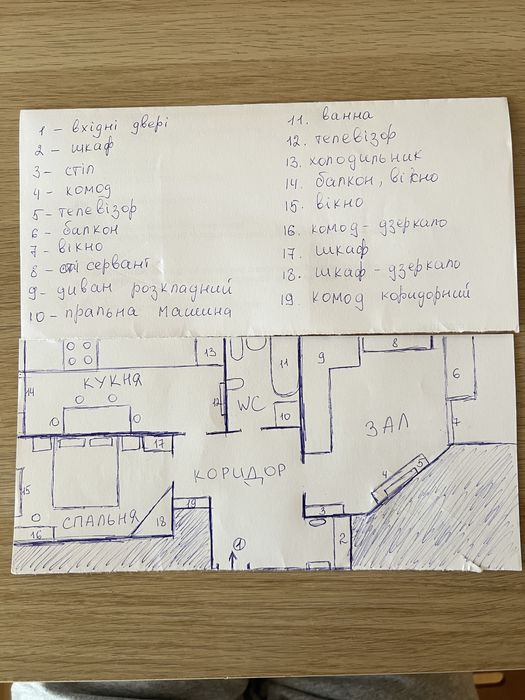 1 - вхідні двері
2 - шкаф
3 - стіл
4 - комод
5 - телевізор
6 - балкон
7 - вікно
8 - сервант
9 - диван розкладний
10 - пральна машина
11. ванна
12. телевізор
13. холодильник
14. балкон, вікно
15. вікно
16. комод - дзеркало
17. шкаф
18. шкаф - дзеркало
19. комод коридорний
13
11
9
8
6
14
КУХНЯ
12
WC
10
ЗАЛ
7
17
КОРИДОР
4 5
15
СПАЛЬНЯ
18
19
3
16
2
1